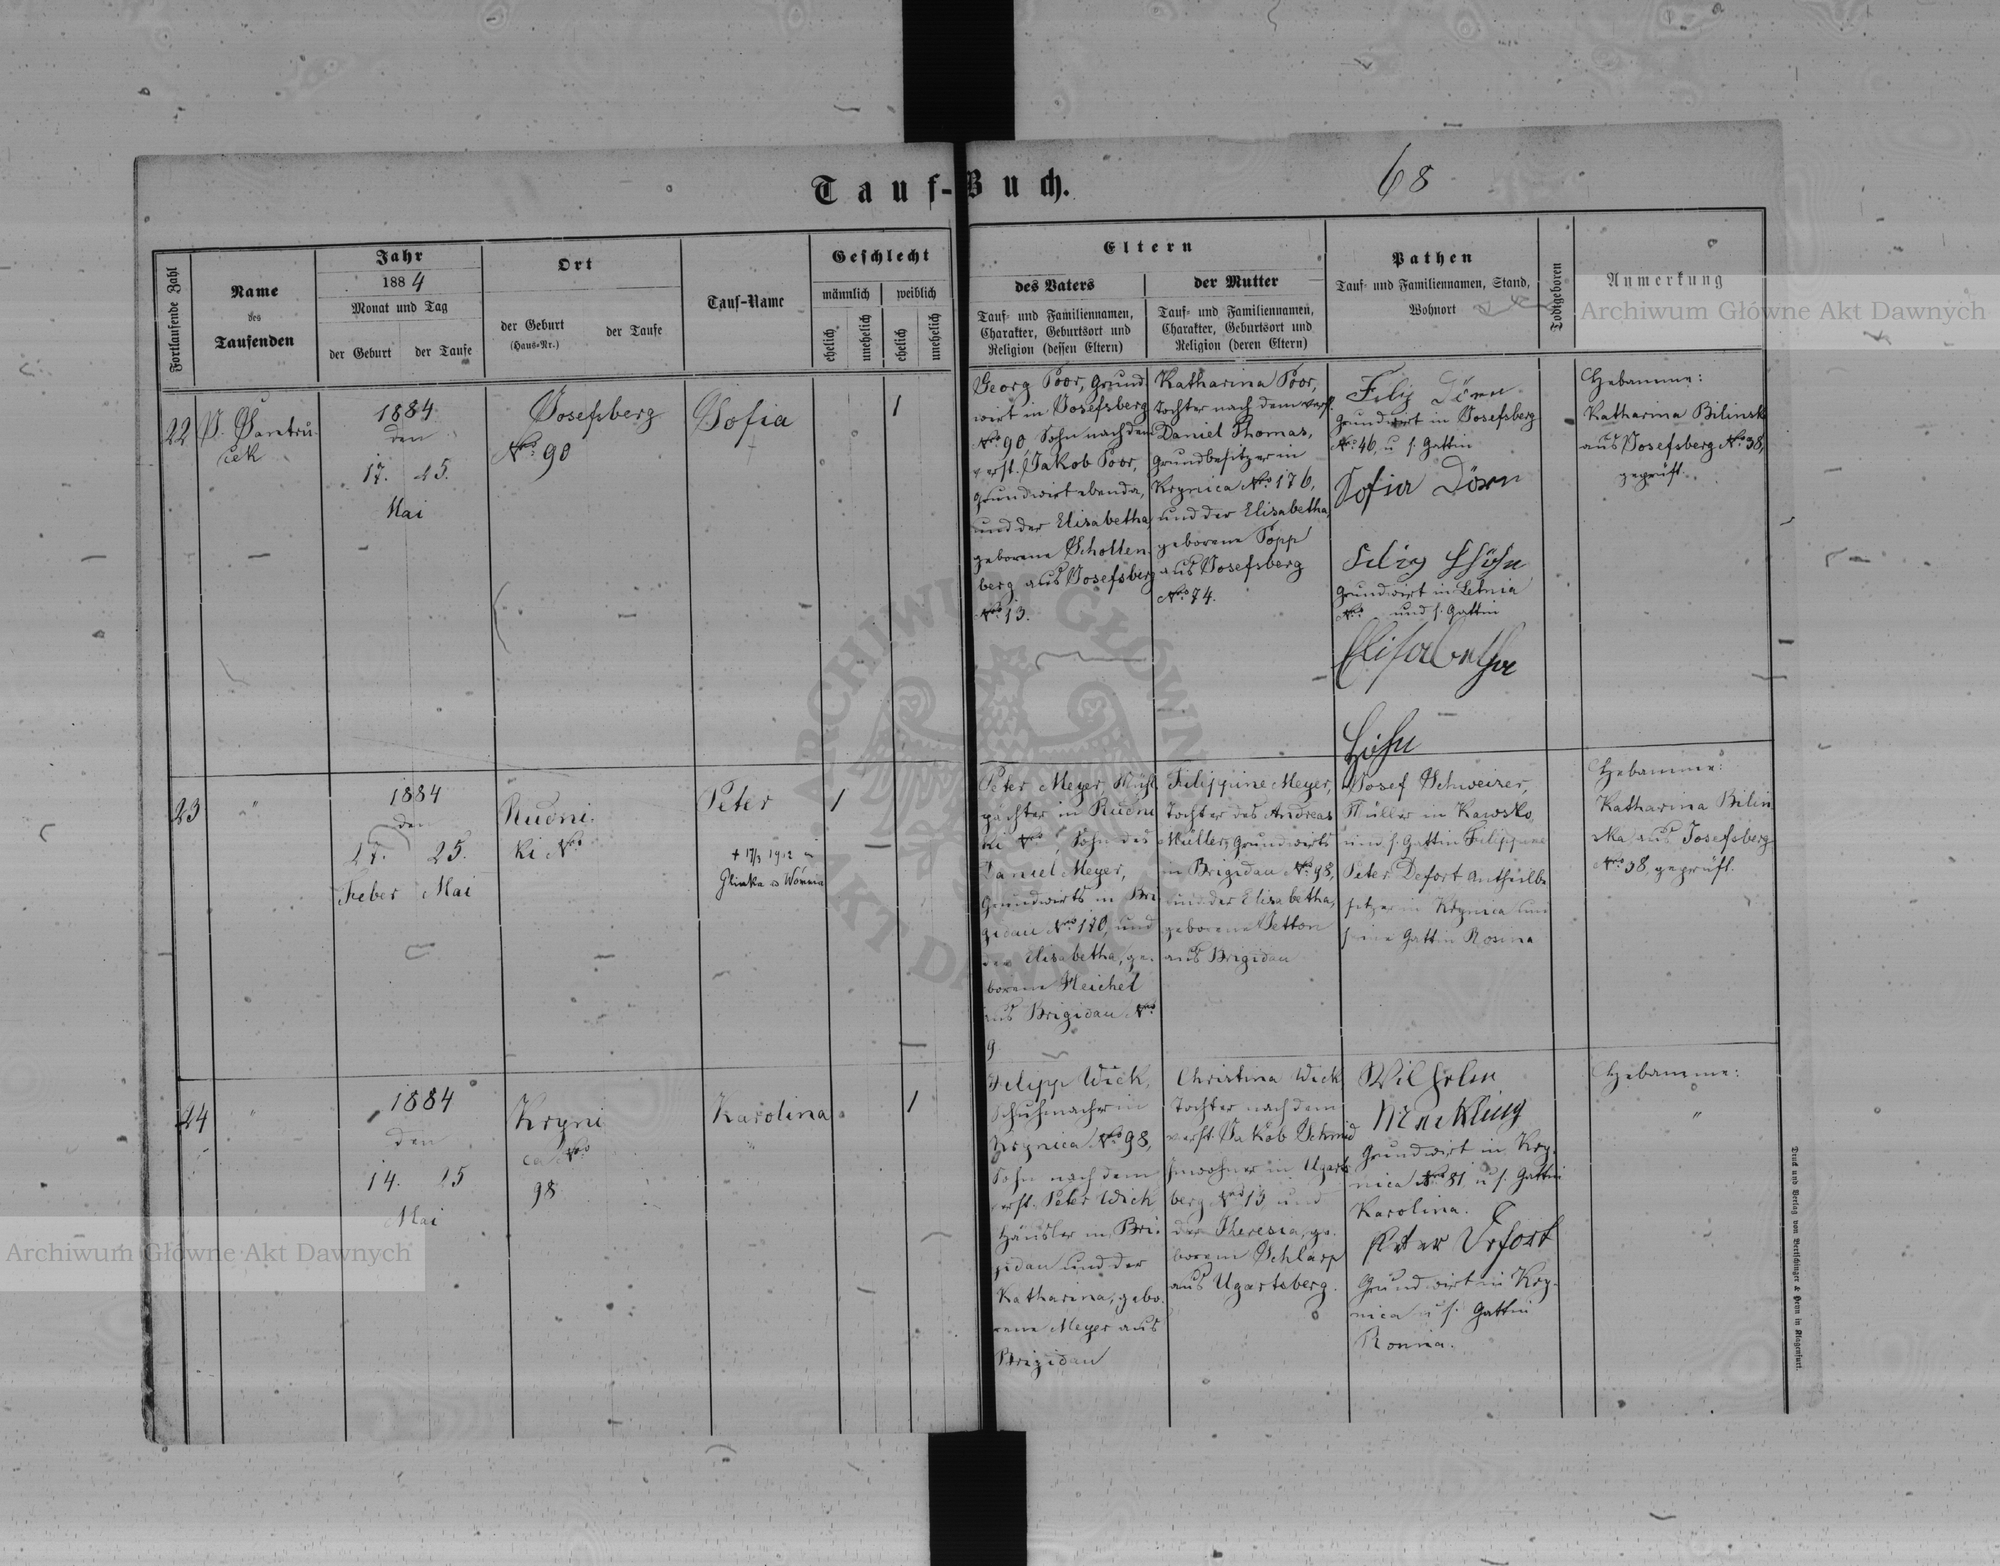 Tauf-Buch.
68
Fortlaufende Zahl
Name
des
Taufenden
Jahr
1884
Monat und Tag
der Geburt
der Taufe
Ort
der Geburt
(Haus-Nr.)
der Taufe
Tauf-Name
Geschlecht
männlich
weiblich
ehelich
unehelich
ehelich
unehelich
Eltern
des Vaters
Tauf- und Familiennamen,
Charakter, Geburtsort und
Religion (dessen Eltern)
der Mutter
Tauf- und Familiennamen,
Charakter, Geburtsort und
Religion (deren Eltern)
Pathen
Tauf- und Familiennamen, Stand,
Wohnort
Todtgeboren
Anmerkung
22
1884
den
17. 25.
Mai
Josefsberg
No. 90
Sofia
1
Georg Poor, Grund
wirt in Josefsberg
No. 90, Sohn nach dem
verst. Jakob Poor,
Grundwirt ebenda,
und der Elisabetha,
geborene Schollen
berg aus Josefsberg
No. 13.
Katharina Poor,
Tochter nach dem verst.
Daniel Thomas,
Grundbesitzer in
Krynica No. 176,
und der Elisabetha,
geborene Popp
aus Josefsberg
No. 74.
Grundwirt in Josefsberg
No. 46, u. s. Gattin
Sofia Dörn
Grundwirt in Letnia
No. und s. Gattin
Elisabetha
Hebamme:
Katharina Bilinsk
aus Josefsberg No. 38,
geprüft.
23
"
1884
den
27. 25.
Feber Mai
Rudni
ki No.
Peter
† 17/3 1912 in
Glinka
1
Peter Meyer, Mühl
pächter in Rudni
ki No. , Sohn des
Daniel Meyer,
Grundwirts in Bri
gidau No. 120, und
der Elisabetha, ge
borene Reichel
aus Brigidau No.
9
Filippine Meyer,
Tochter des Andreas
Müller, Grundwirts
in Brigidau No. 98,
und der Elisabetha,
geborene Jetton
aus Brigidau
Josef Schweizer,
Müller in Kawsko,
und s. Gattin Filippine
Peter Defort Antheilbe
sitzer in Krynica und
seine Gattin Rosina
Hebamme:
Katharina Bilin
ska aus Josefsberg
No. 38, geprüft.
24
"
1884
den
14. 25
Mai
Kryni
ca No.
98
Karolina
1
Filipp Wick,
Schuhmacher in
Krynica No. 98,
Sohn nach dem
verst. Peter Wick,
Häusler in Bri
gidau und der
Katharina, gebo
rene Meyer aus
Brigidau
Christina Wick
Tochter nach dem
verst. Jakob Schmid
Inwohner in Ugarts
berg No. 13, und
der Theresia, ge
borene Schlarp
aus Ugartsberg.
Wilhelm
Grundwirt in Kry
nica No. 81 u. s. Gattin
Karolina.
Peter Defort
Grundwirt in Kry
nica u. s. Gattin
Rosina.
Hebamme:
"
Druck und Verlag von Bertschinger & Heyn in Klagenfurt.
Archiwum Główne Akt Dawnych
Archiwum Główne Akt Dawnych
ARCHIWUM GŁÓWNE
AKT DAWNYCH